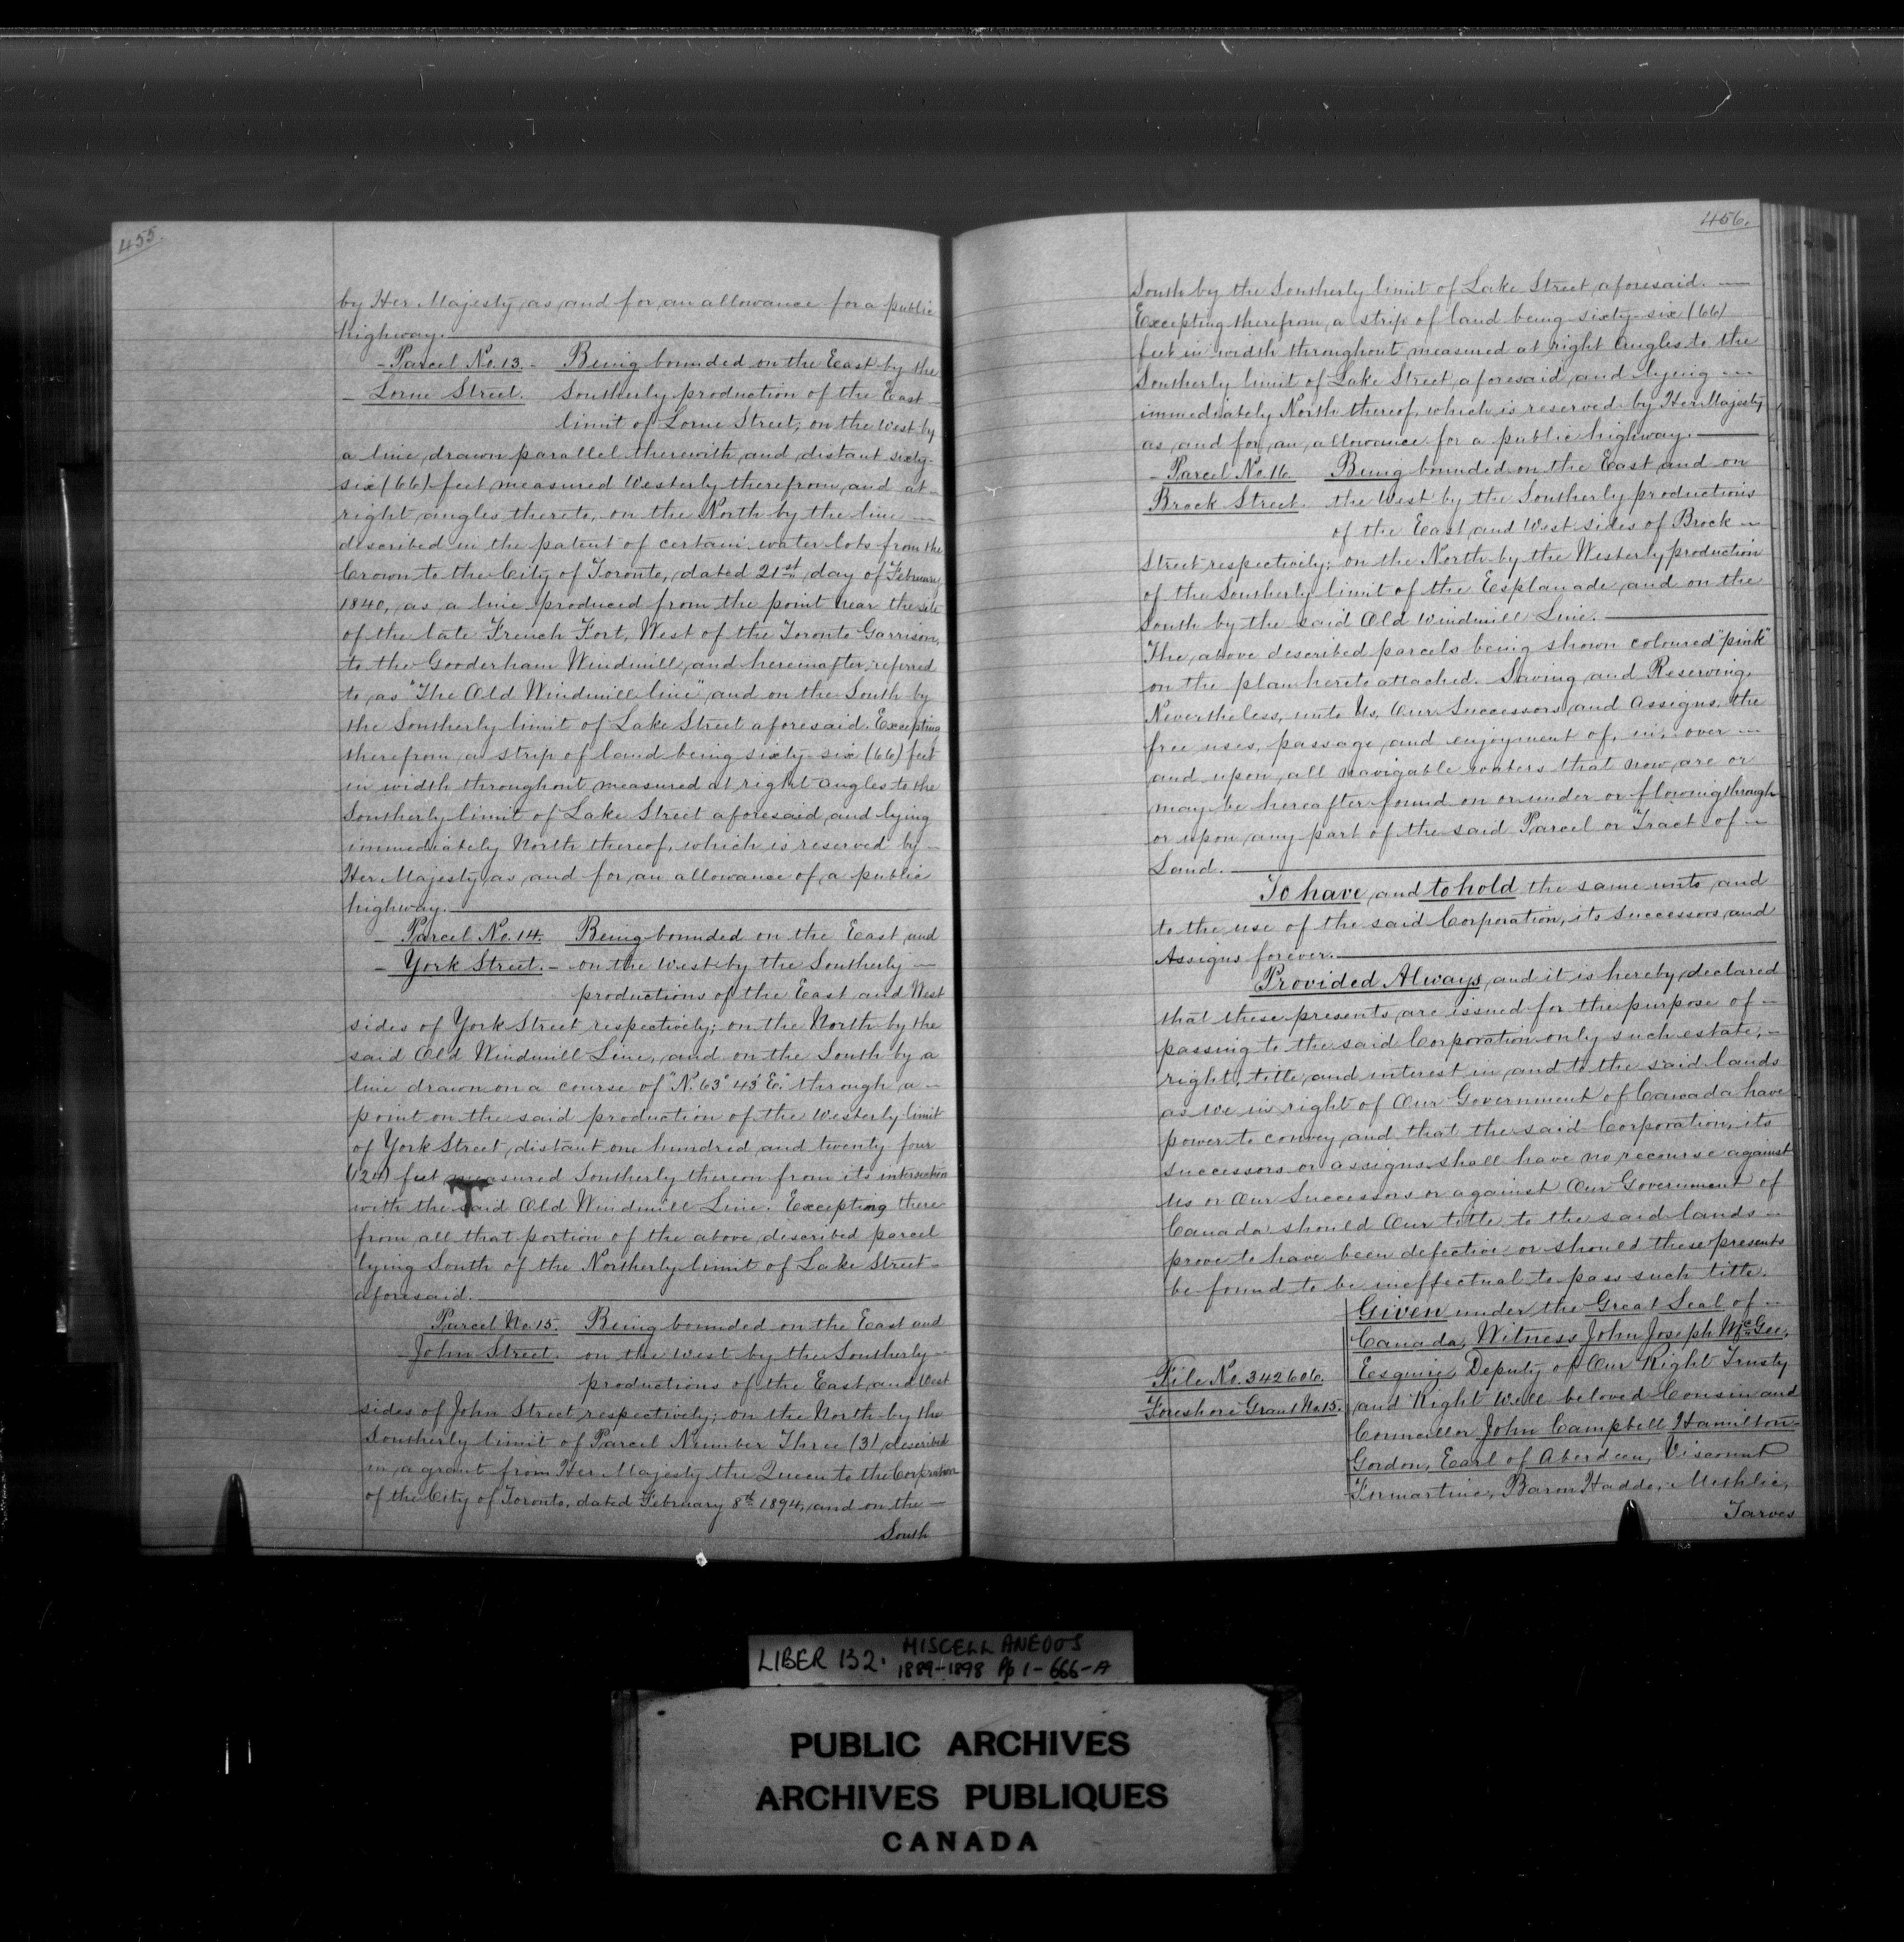 455.
by Her Majesty, as, and for, an allowance for a public
highway.
- Parcel No. 13. - Being bounded on the East by the
- Lorne Street. Southerly production of the East -
limit of Lorne Street; on the West by
a line drawn parallel therewith and distant sixty-
six (66) feet measured Westerly therefrom, and at -
right angles thereto, on the North by the line -
described in the patent of certain water lots from the
Crown to the City of Toronto, dated 21st day of February,
1840, as a line produced from the point near the site
of the late French Fort, West of the Toronto Garrison,
to the Gooderham Windmill, and hereinafter, referred
to as "The Old Windmill line" and on the South by
the Southerly limit of Lake Street aforesaid. Excepting
therefrom a strip of land being sixty-six (66) feet
in width throughout measured at right angles to the
Southerly limit of Lake Street aforesaid, and lying
immediately North thereof, which is reserved by -
Her Majesty, as and for an allowance of a public
highway.
- Parcel No. 14. Being bounded on the East and
- York Street. - on the West by the Southerly -
productions of the East and West
sides of York Street respectively; on the North by the
said Old Windmill Line, and on the South by a
line drawn on a course of "N. 63° 43' E." through a -
point on the said production of the Westerly limit
of York Street, distant one hundred and twenty four
(124) feet measured Southerly thereon from its intersection
with the said Old Windmill Line. Excepting there
from all that portion of the above described parcel
lying South of the Northerly limit of Lake Street -
aforesaid.
Parcel No. 15. Being bounded on the East and
John Street. on the West by the Southerly -
productions of the East and West
sides of John Street respectively; on the North by the
Southerly limit of Parcel Number Three (3) described
in a grant from Her Majesty the Queen to the Corporation
of the City of Toronto, dated February 8th 1894, and on the -
South
456.
South by the Southerly limit of Lake Street aforesaid. -
Excepting therefrom a strip of land being sixty-six (66)
feet in width throughout measured at right angles to the
Southerly limit of Lake Street aforesaid and lying -
immediately North thereof, which is reserved by Her Majesty
as and for an allowance for a public highway.
- Parcel No. 16. Being bounded on the East and on
Brock Street. the West by the Southerly productions
of the East and West sides of Brock -
Street respectively; on the North by the Westerly production
of the Southerly limit of the Esplanade, and on the
South by the said Old Windmill Line.
The above described parcels being shown coloured "pink"
on the plan hereto attached. Saving and Reserving,
Nevertheless, unto Us, Our Successors and Assigns, the
free uses, passage and enjoyment of, in, over -
and upon all navigable waters that now are or
may be hereafter found on or under or flowing through
or upon any part of the said Parcel or Tract of -
Land.
To have and to hold the same unto and
to the use of the said Corporation, its Successors and
Assigns forever.
Provided Always, and it is hereby declared
that these presents are issued for the purpose of -
passing to the said Corporation only such estate, -
right, title and interest in and to the said lands
as We in right of Our Government of Canada have
power to convey and that the said Corporation, its
successors or assigns shall have no recourse against
Us or Our Successors or against Our Government of
Canada should Our title to the said lands -
prove to have been defective or should these presents
be found to be ineffectual to pass such title.
Given under the Great Seal of -
Canada, Witness John Joseph McGee,
Esquire, Deputy of Our Right Trusty
and Right Well-beloved Cousin and
Councillor John Campbell Hamilton-
Gordon, Earl of Aberdeen, Viscount
Formartine, Baron Haddo, Methlic,
Tarves
File No. 342606.
Foreshore Grant No. 15.
LIBER 132. MISCELLANEOUS
1889-1898 Pp 1-666-A
PUBLIC ARCHIVES
ARCHIVES PUBLIQUES
CANADA